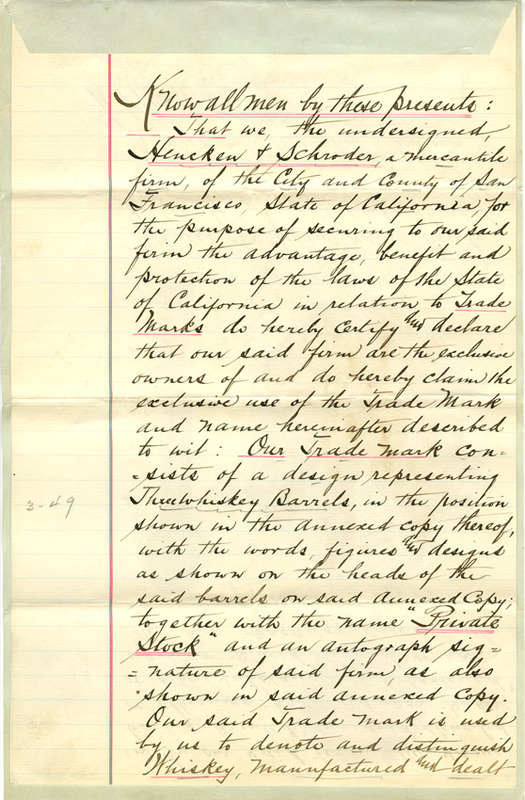 Know all men by these presents:
That we, the undersigned,
Hencken & Schroder, a mercantile
firm, of the City and County of San
Francisco, State of California, for
the purpose of securing to our said
firm the advantage, benefit and
protection of the laws of the State
of California in relation to Trade
Marks do hereby certify and declare
that our said firm are the exclusive
owners of and do hereby claim the
exclusive use of the Trade Mark
and name hereinafter described
to wit: Our Trade Mark con=
=sists of a design representing
Three Whiskey Barrels, in the position
3-49
shown in the annexed copy thereof,
with the words, figures and designs
as shown on the heads of the
said barrels on said Annexed Copy;
together with the name "Private
Stock" and an autograph sig=
=nature of said firm, as also
shown in said annexed Copy.
Our said Trade Mark is used
by us to denote and distinguish
Whiskey, manufactured and dealt